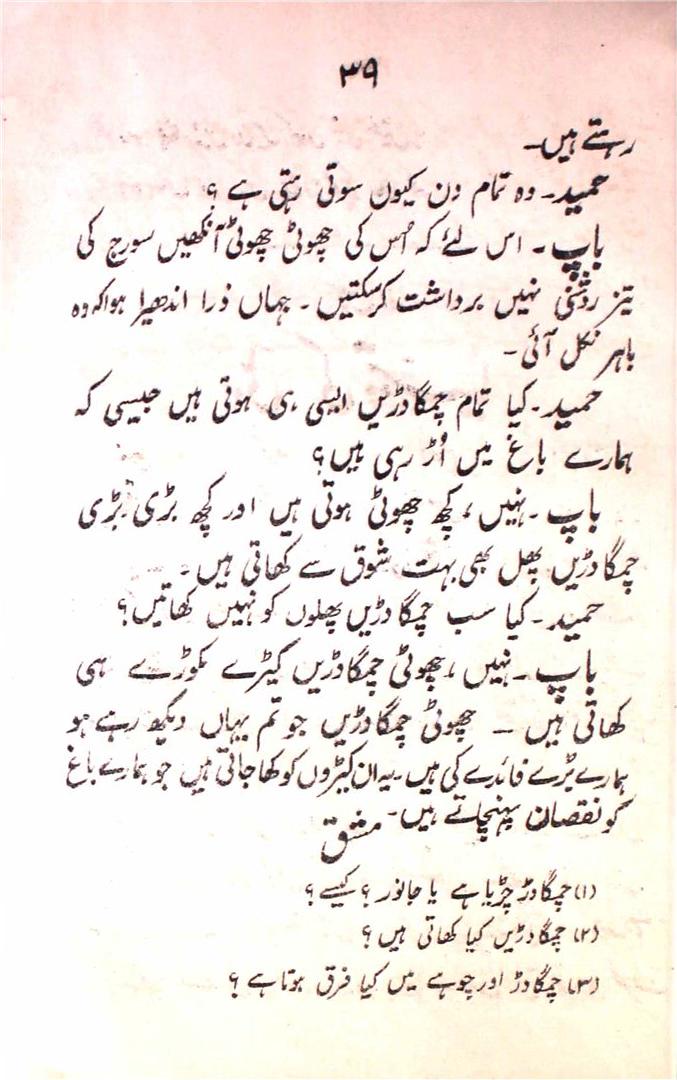 ۳۹
رہتے ہیں۔
حمید۔ وہ تمام دن کیوں سوتی رہتی ہے ؟
باپ۔ اس لئے کہ اُس کی چھوٹی چھوٹی آنکھیں سورج کی
تیز روشنی نہیں برداشت کرسکتیں۔ جہاں ذرا اندھیرا ہوا کہ وہ
باہر نکل آئی۔
حمید۔ کیا تمام چمگادڑیں ایسی ہی ہوتی ہیں جیسی کہ
ہمارے باغ میں اُڑ رہی ہیں؟
باپ۔ نہیں، کچھ چھوٹی ہوتی ہیں اور کچھ بڑی۔ بڑی
چمگادڑیں پھل بھی بہت شوق سے کھاتی ہیں۔
حمید۔ کیا سب چمگادڑیں پھلوں کو نہیں کھاتیں؟
باپ۔ نہیں، چھوٹی چمگادڑیں کیڑے مکوڑے ہی
کھاتی ہیں ۔ چھوٹی چمگادڑیں جو تم یہاں دیکھ رہے ہو
ہمارے بڑے فائدے کی ہیں۔ یہ ان کیڑوں کو کھا جاتی ہیں جو ہمارے باغ
کو نقصان پہنچاتے ہیں۔
مشق
(۱) چمگادڑ چڑیا ہے یا جانور ؟ کیسے ؟
(۲) چمگادڑیں کیا کھاتی ہیں ؟
(۳) چمگادڑ اور چوہے میں کیا فرق ہوتا ہے ؟